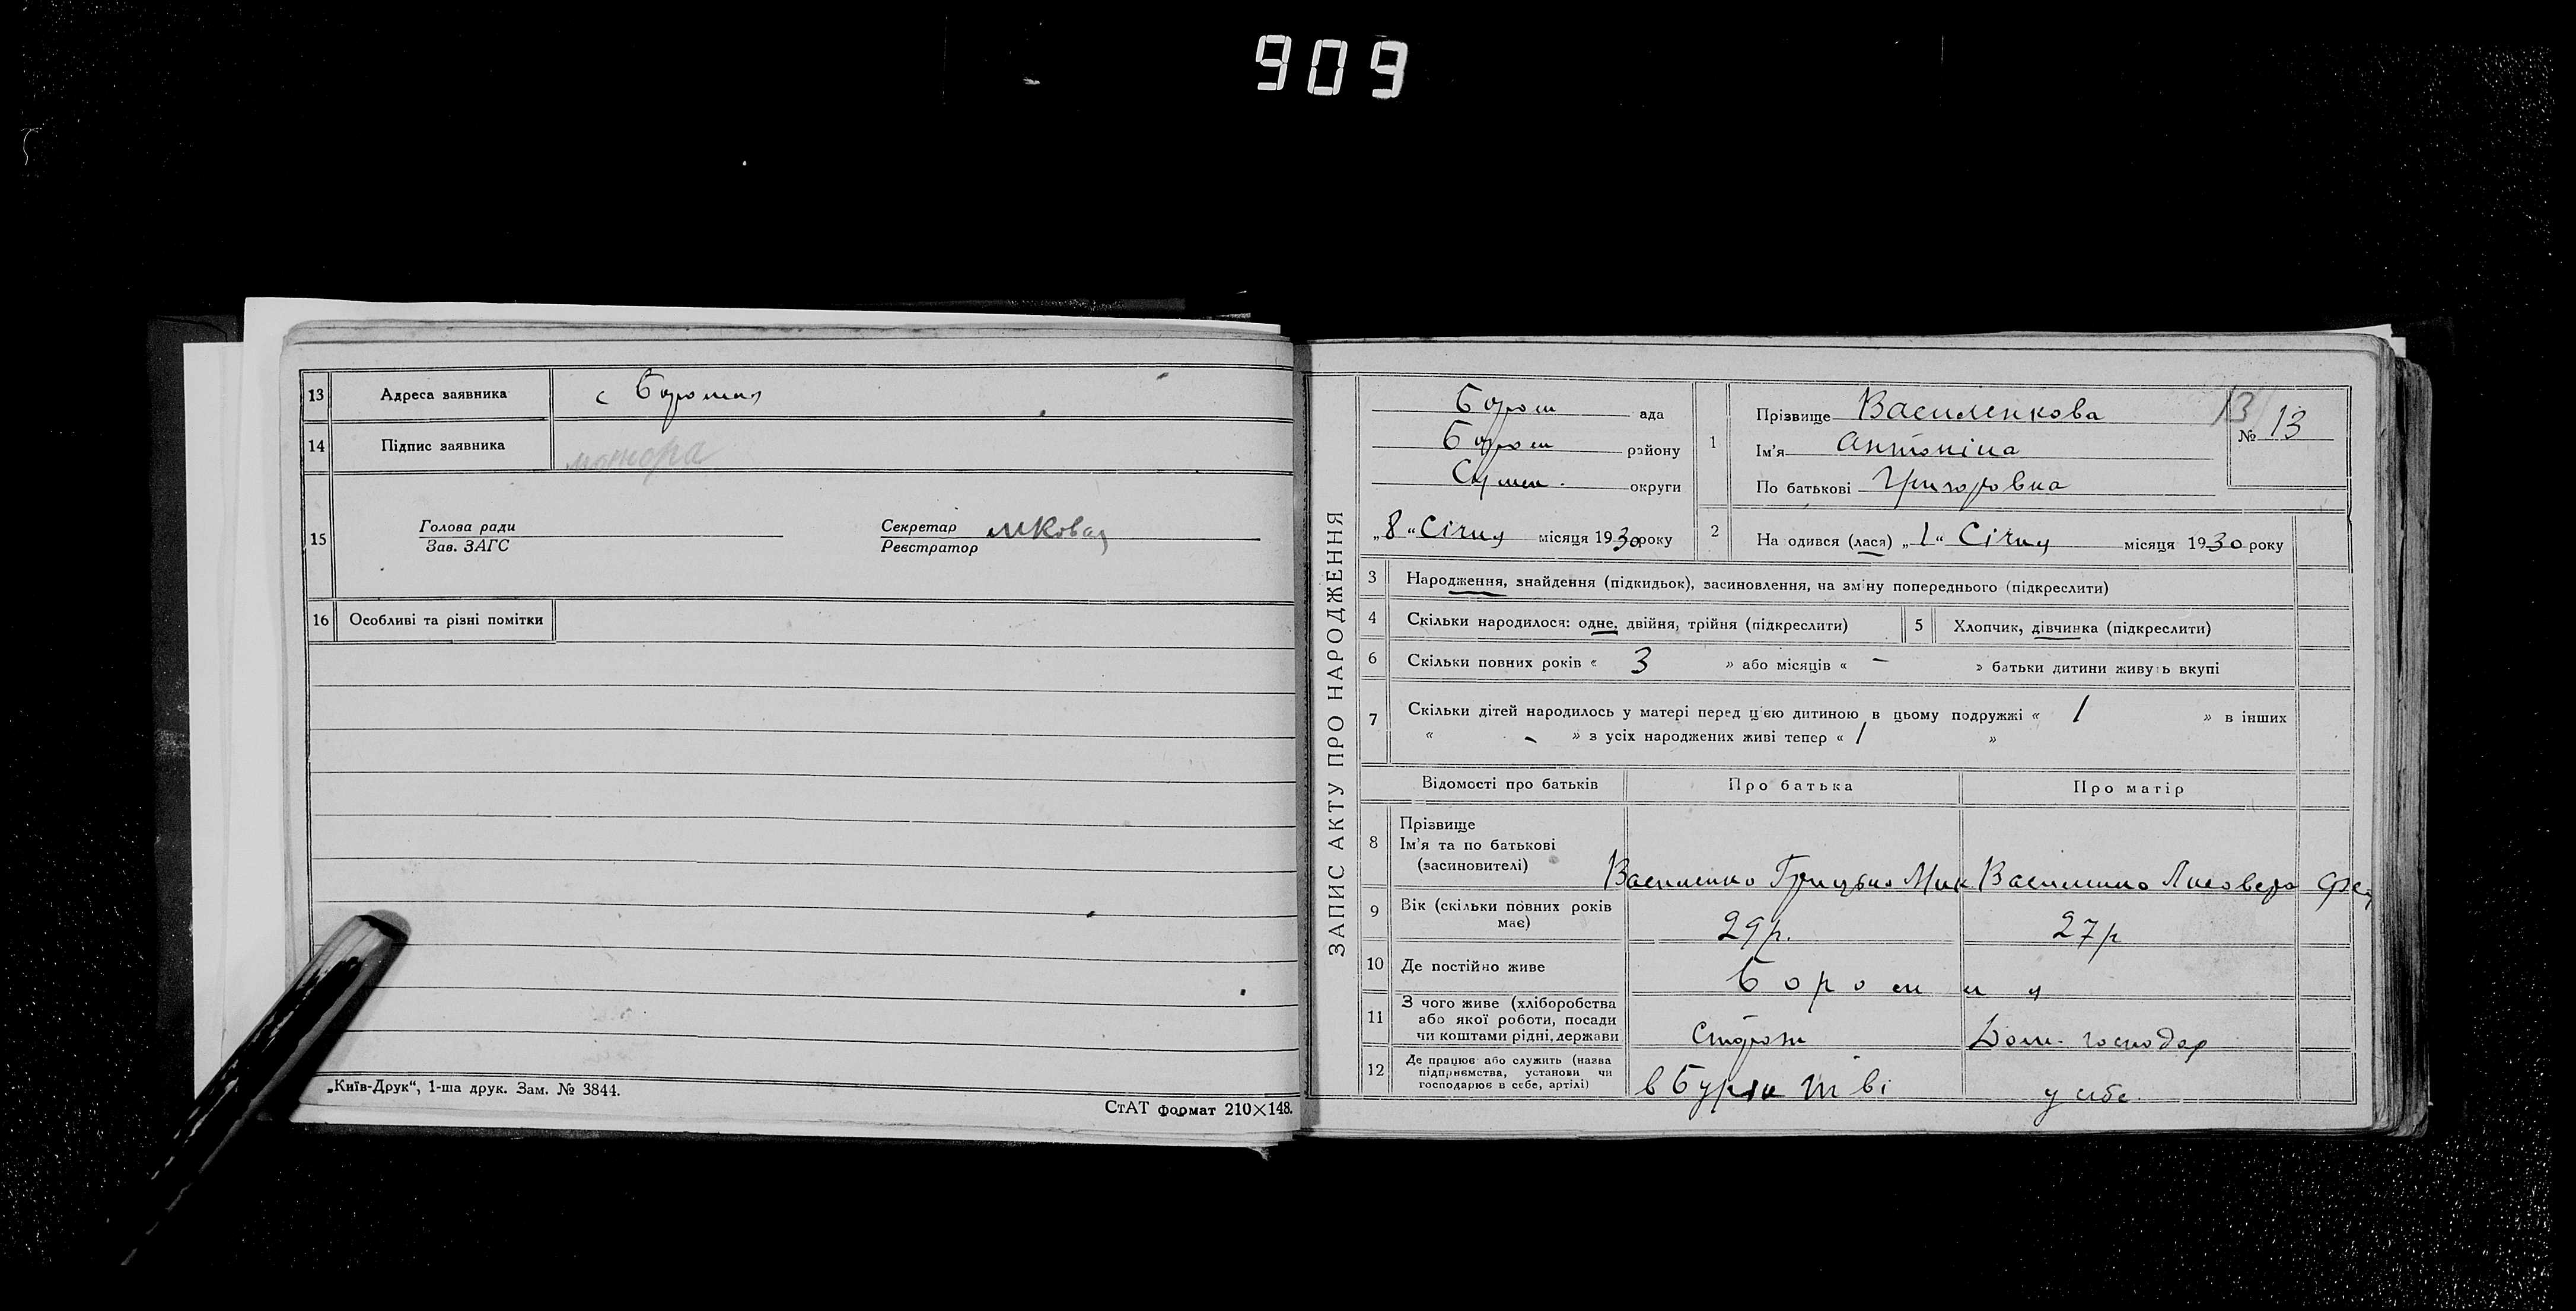 909
13 Адреса заявника с Боромля
14 Підпис заявника
15 Голова ради
Зав. ЗАГС
Секретар
Реєстратор
16 Особливі та різні помітки
„Київ-Друк“, 1-ша друк. Зам. № 3844.
СтАТ формат 210×148.
ЗАПИС АКТУ ПРО НАРОДЖЕННЯ
Бором ада
Бором району
Сумськ. округи
„8“ Січня місяця 1930 року
1 Прізвище Василенкова
Ім'я Антоніна
По батькові Григоровна
13
№ 13
2 На одився (лася) „1“ Січня місяця 1930 року
3 Народження, знайдення (підкидьок), засиновлення, на зміну попереднього (підкреслити)
4 Скільки народилося: одне, двійня, трійня (підкреслити)
5 Хлопчик, дівчинка (підкреслити)
6 Скільки повних років « 3 » або місяців « – » батьки дитини живуть вкупі
7 Скільки дітей народилось у матері перед цією дитиною в цьому подружжі « 1 » в інших
« - » з усіх народжених живі тепер « 1 »
Відомості про батьків Про батька Про матір
8 Прізвище
Ім'я та по батькові
(засиновителі)
Василенко Грицько Мик Василенко Лисовера Фед
9 Вік (скільки повних років
має)
29р. 27р
10 Де постійно живе Боромля
11 З чого живе (хліборобства
або якої роботи, посади
чи коштами рідні, держави
Сторож Дом. господар
12 Де працює або служить (назва
підприємства, установи чи
господарює в себе, артілі)
в Буряк т ві у себе.